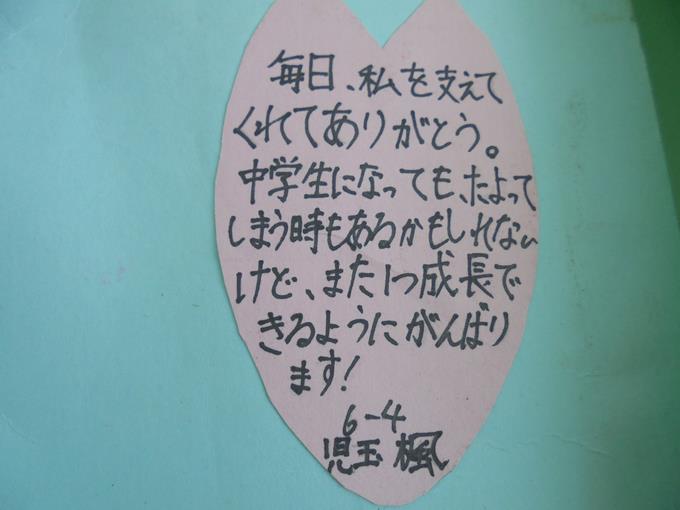 毎日、私を支えて
くれてありがとう。
中学生になっても、たよって
しまう時もあるかもしれない
けど、また1つ成長で
きるようにがんばり
ます!
6-4
児玉 楓